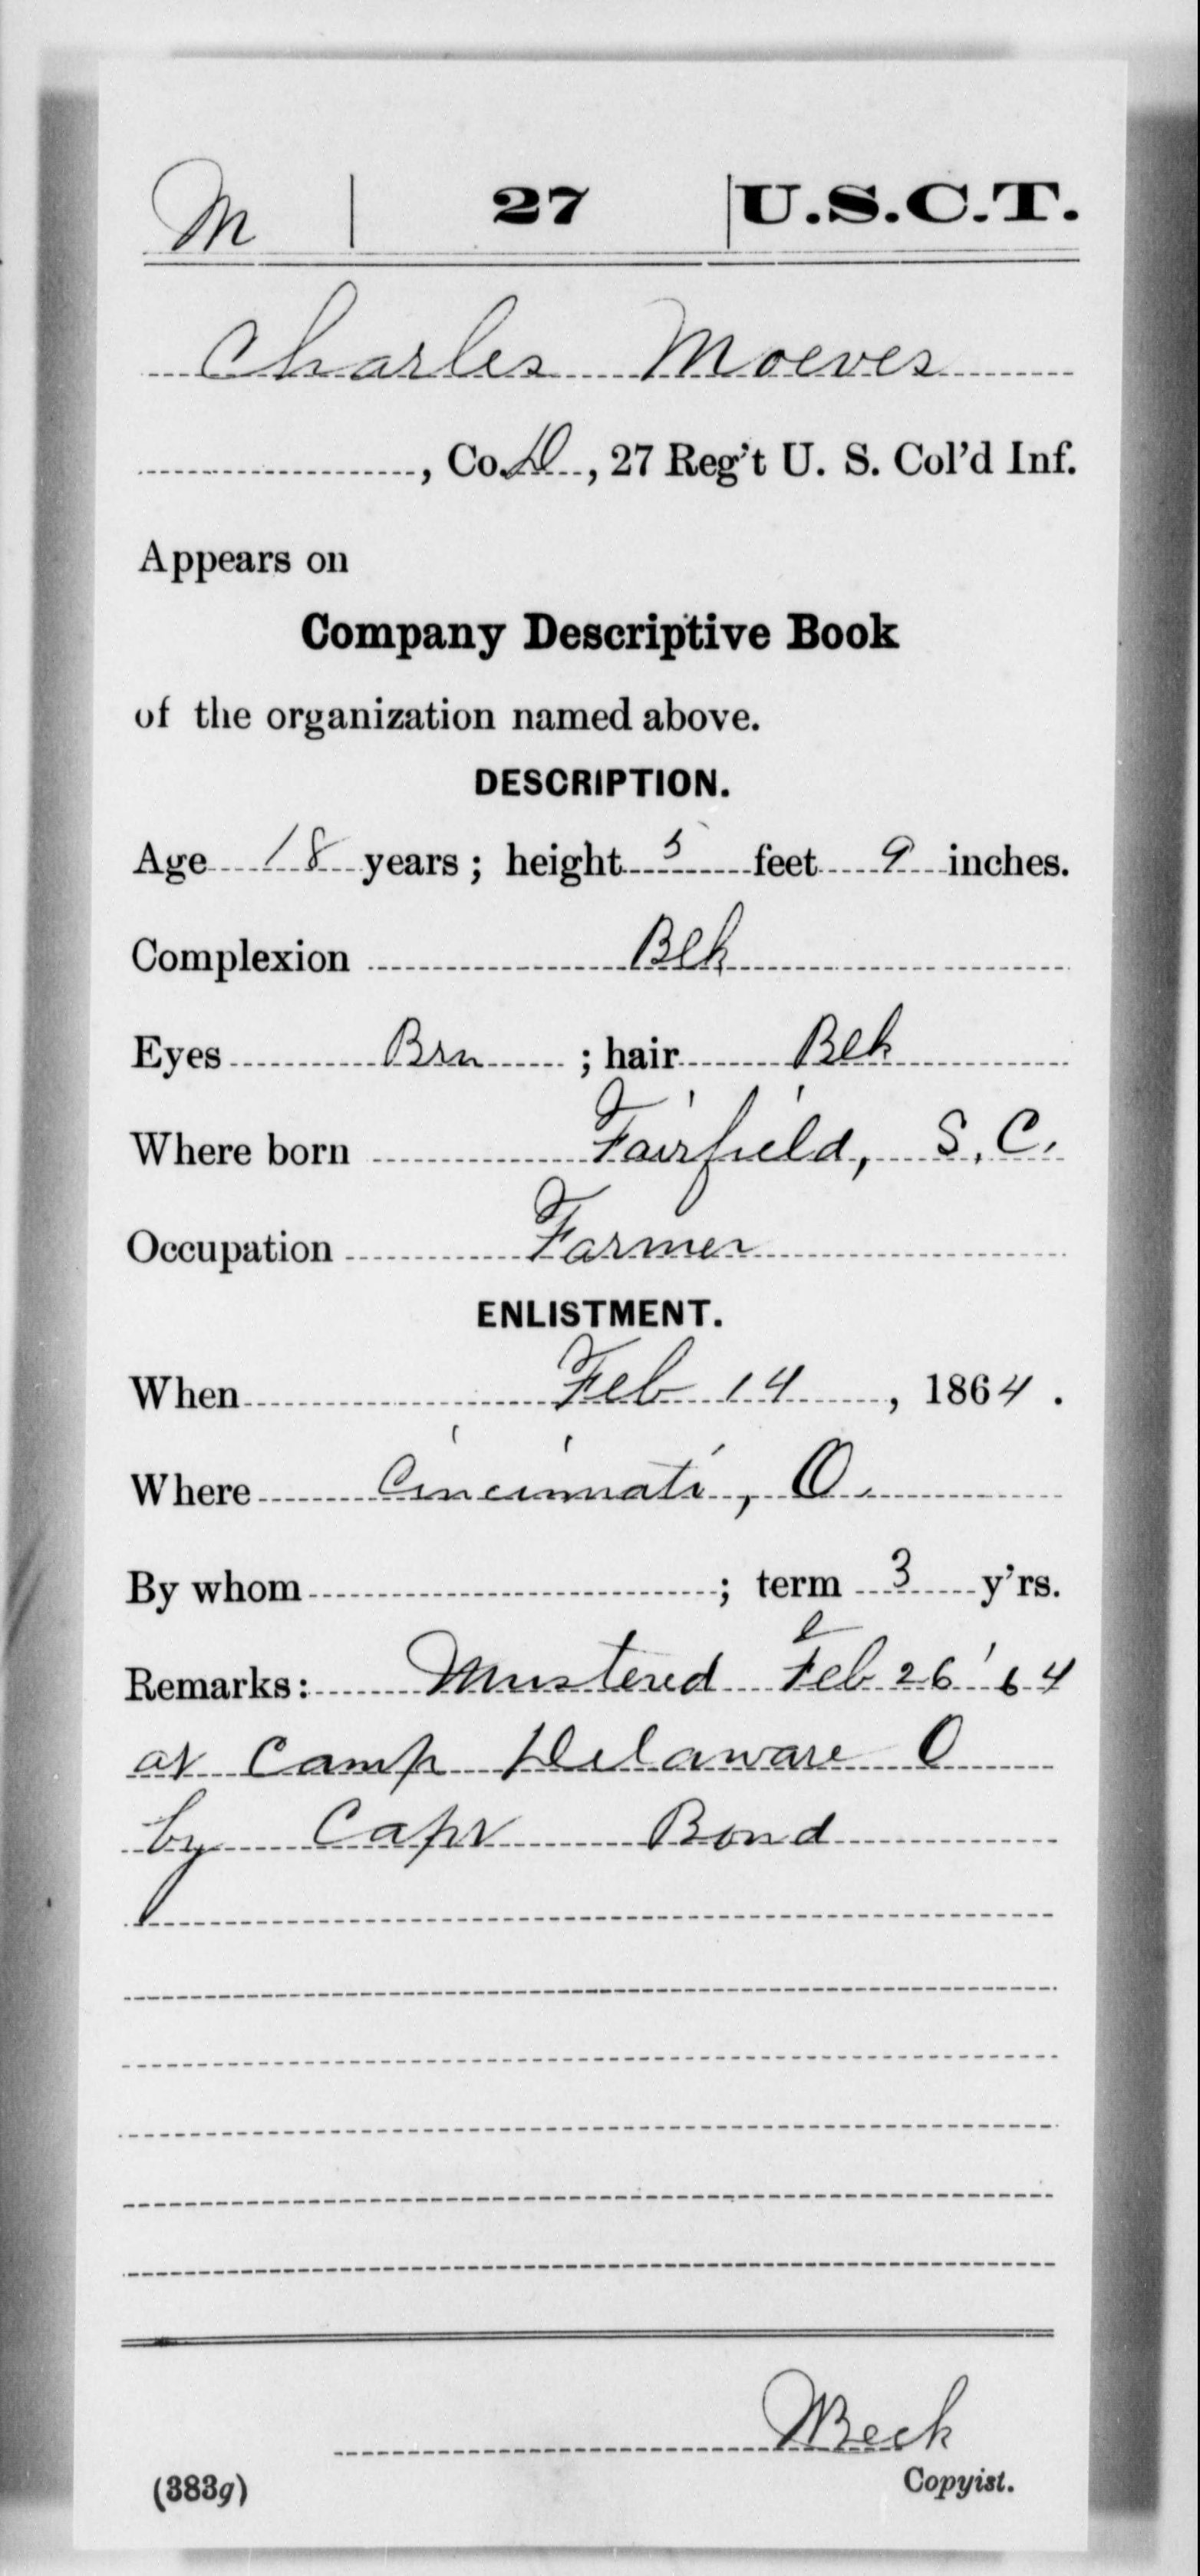 M | 27 | U.S.C.T.
Charles Moeves
, Co. D, 27 Reg't U. S. Col'd Inf.
Appears on
Company Descriptive Book
of the organization named above.
DESCRIPTION.
Age 18 years; height 5 feet 9 inches.
Complexion Blk
Eyes Brn; hair Blk
Where born Fairfield, S. C.
Occupation Farmer
ENLISTMENT.
When Feb 14, 1864.
Where Cincinnati, O.
By whom ; term 3 y'rs.
Remarks: Mustered Feb 26 '64
at Camp Delaware O
by Capt Bond
Beck
Copyist.
(383g)